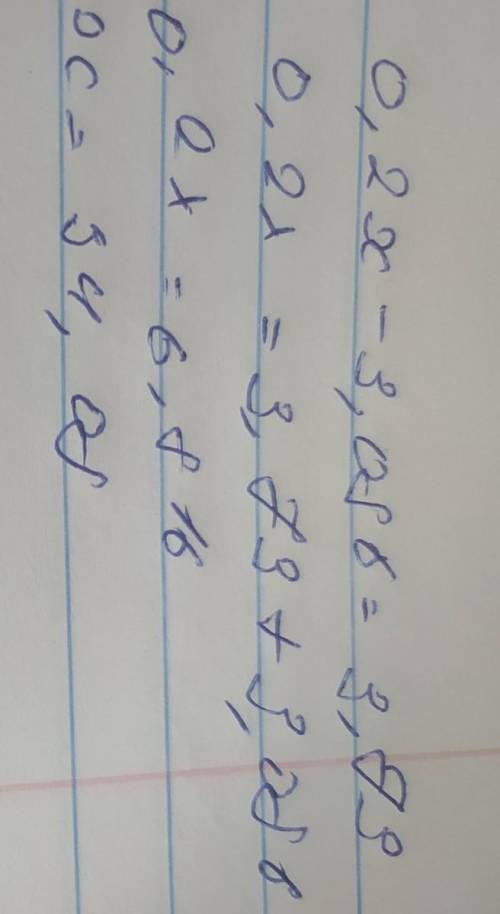 0,2x - 3,086 = 3,73
0,2x = 3,73 + 3,086
0,2x = 6,816
x = 34,08